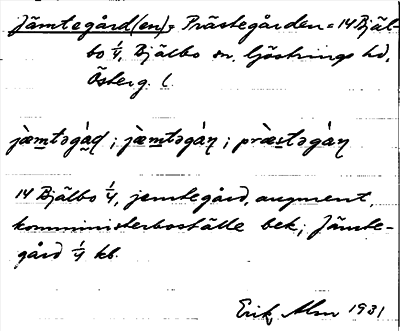 Jämtegård(en) = Prästegården = 14 Bjäl-
bo 1/4, Bjälbo sn. Göstrings hd,
Österg. l.
jæmtəgàɖ ; jæmtəgàɳ ; præstəgàɳ
14 Bjälbo 1/4, jemtegård, augment,
komministerboställe bek; Jämte-
gård 1/4 kb.
Erik Alm 1931